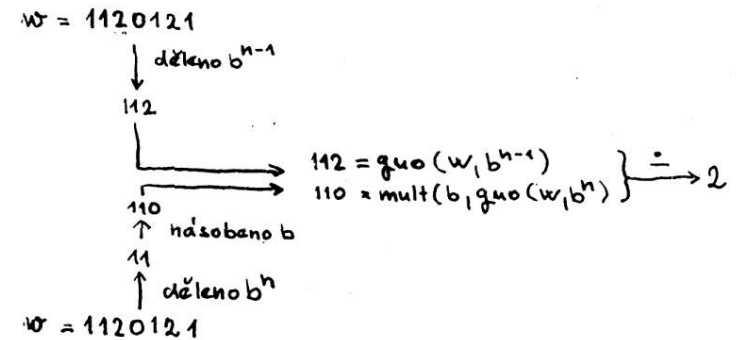 w = 1120121
děleno bⁿ⁻¹
112
112 = quo(w, bⁿ⁻¹)
110 = mult(b, quo(w, bⁿ) } ∸ → 2
110
↑ násobeno b
11
děleno bⁿ
w = 1120121